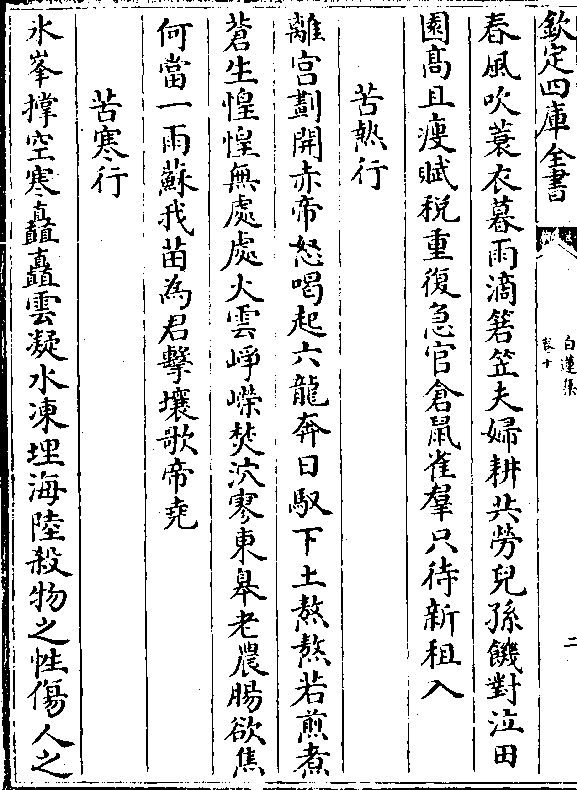 欽定四庫全書
白蓮集
卷十
二
春風吹蓑衣暮雨滴箬笠夫婦耕共勞兒孫饑對泣田
園高且瘦賦稅重復急官倉鼠雀羣只待新租入
苦熱行
離宮劃開赤帝怒喝起六龍奔日馭下土熬熬若煎煮
蒼生惶惶無處處火雲崢嶸焚泬寥東皋老農腸欲焦
何當一雨蘇我苗為君擊壤歌帝堯
苦寒行
氷峯撐空寒矗矗雲凝水凍埋海陸殺物之性傷人之